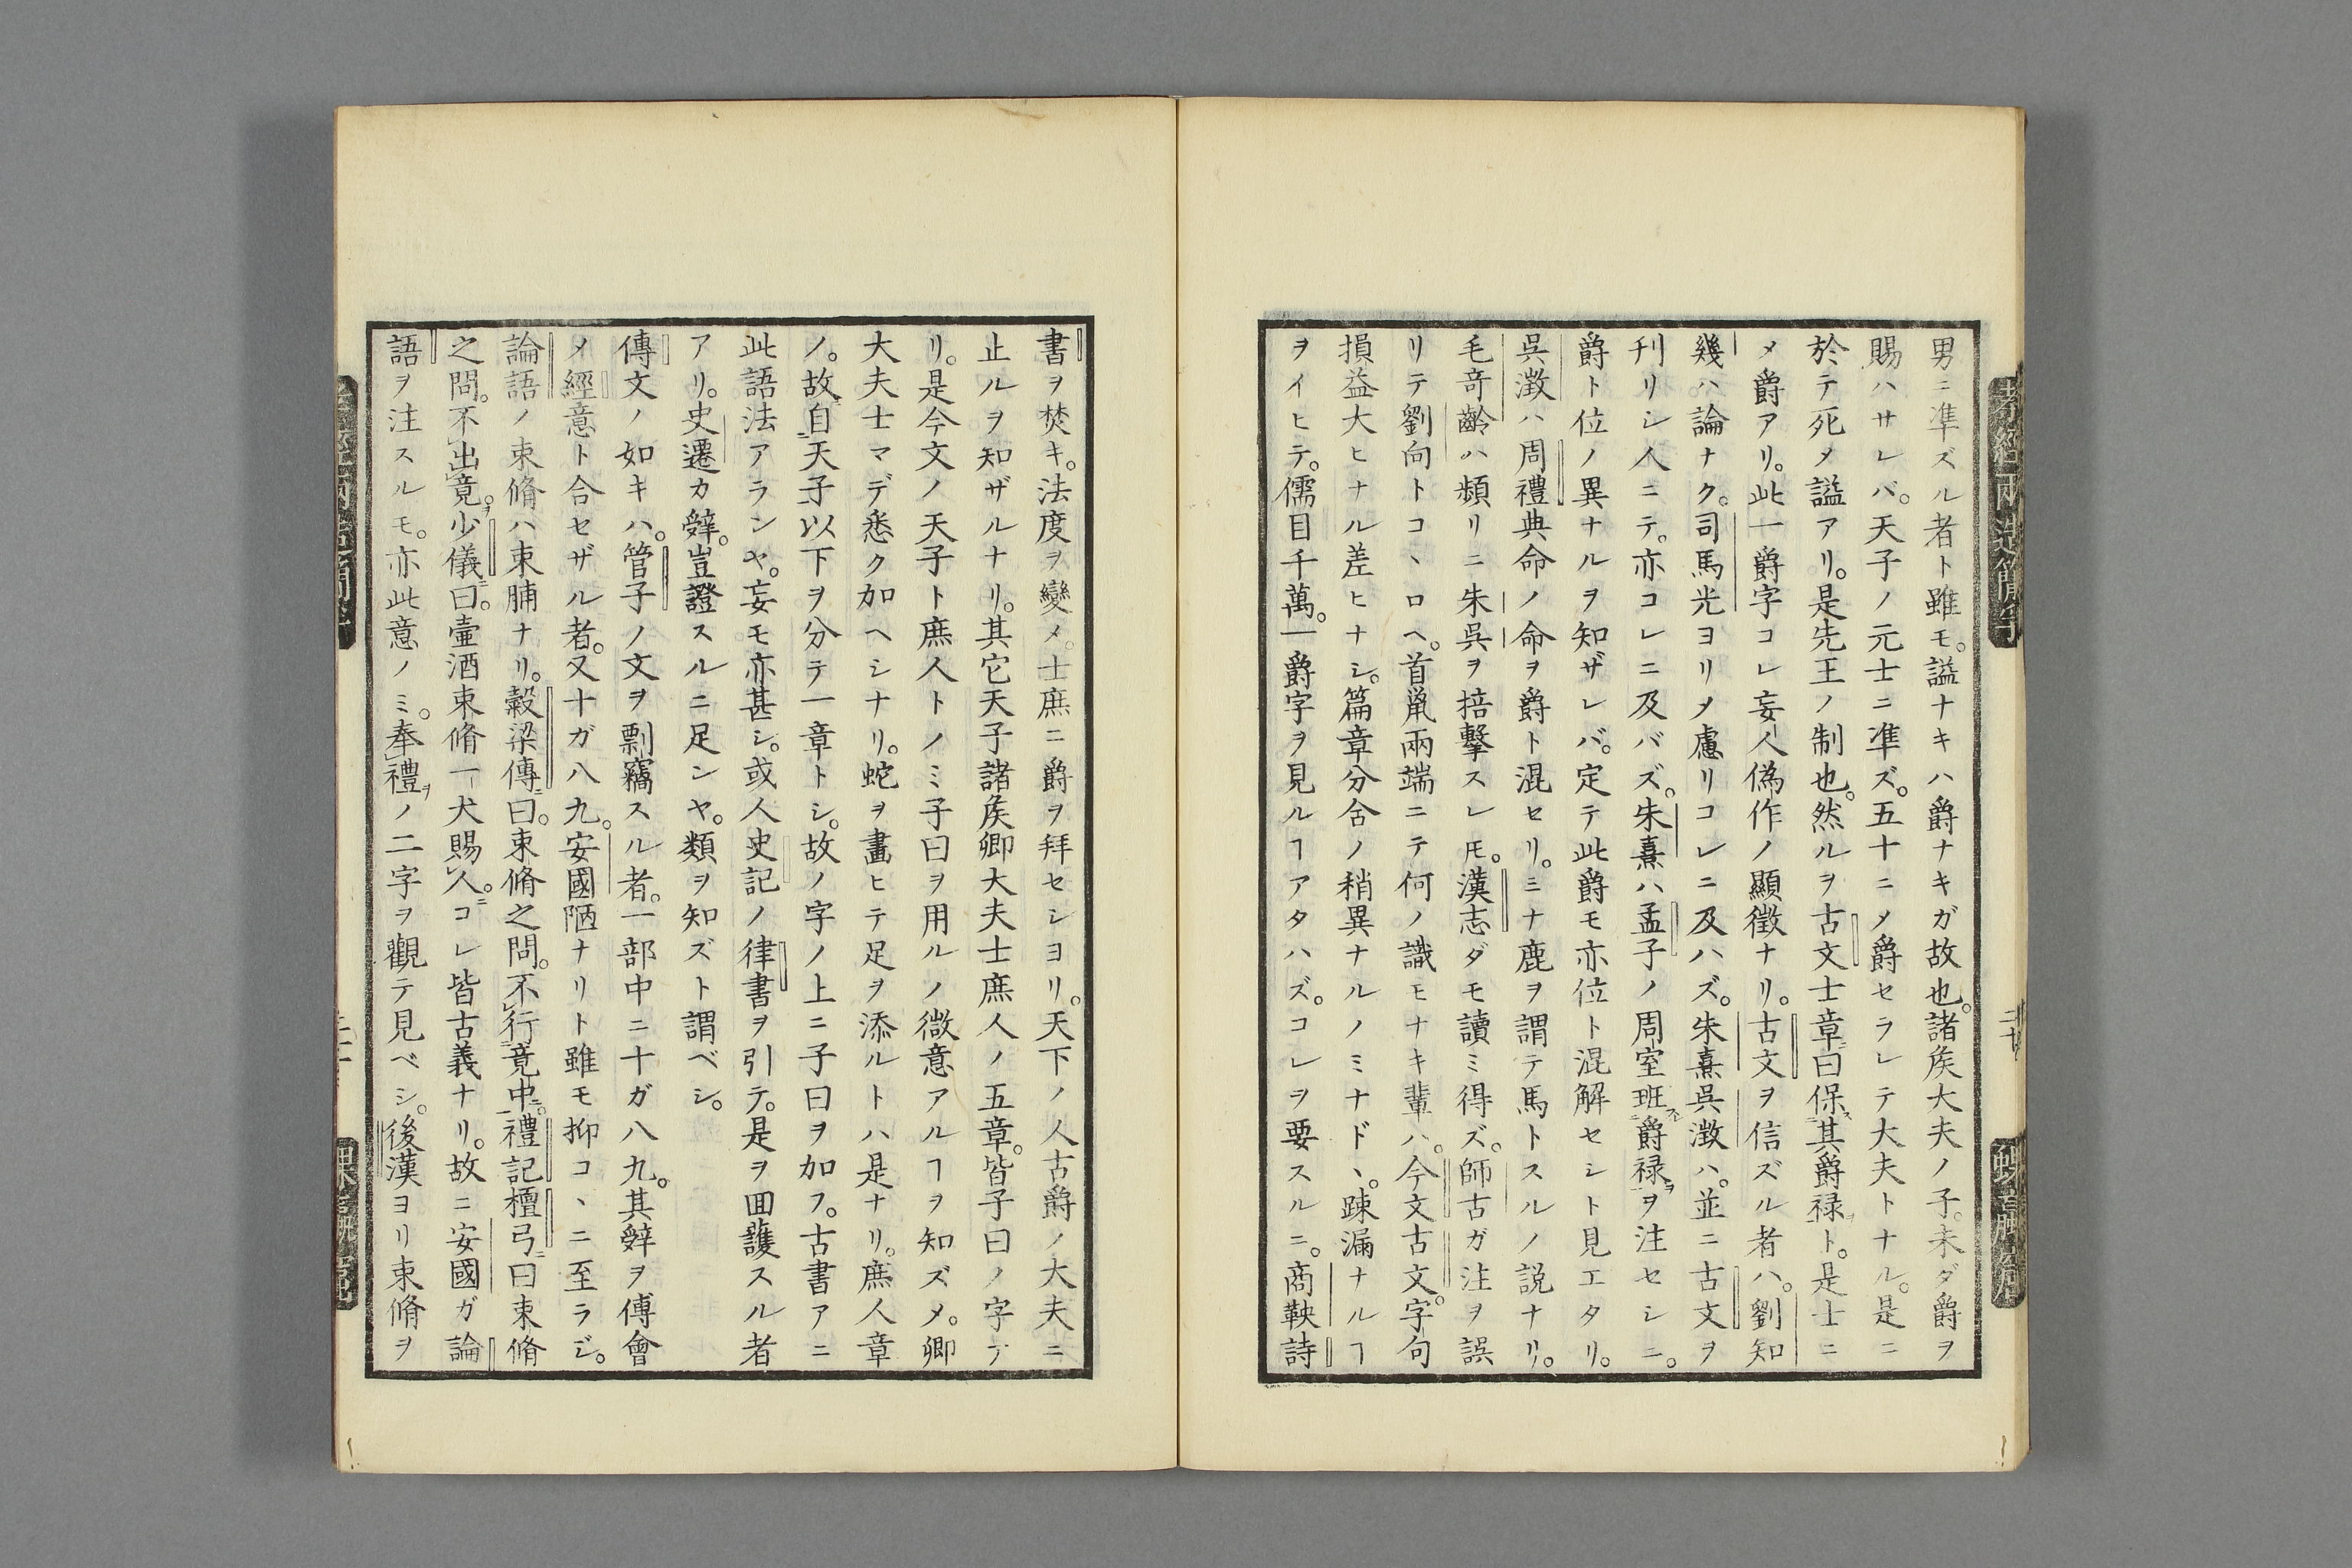 男ニ準ズル者ト雖モ。謚ナキハ爵ナキガ故也。諸矦大夫ノ子。未ダ爵ヲ
賜ハサレバ。天子ノ元士ニ準ズ。五十ニメ爵セラレテ大夫トナル。是ニ
於テ死メ謚アリ。是先王ノ制也。然ルヲ古文士章曰保其爵禄ト。是士ニ
メ爵アリ。此一爵字コレ妄人偽作ノ顯徵ナリ。古文ヲ信ズル者ハ。劉知
幾ハ論ナク。司馬光ヨリメ慮リコレニ及ハズ。朱熹呉澂ハ。並ニ古文ヲ
刊リシ人ニテ。亦コレニ及バズ。朱熹ハ孟子ノ周室班爵禄ヲ注セシニ。
爵ト位ノ異ナルヲ知ザレバ。定テ此爵モ亦位ト混解セシト見エタリ。
呉澂ハ周禮典命ノ命ヲ爵ト混セリ。ミナ鹿ヲ謂テ馬トスルノ説ナリ。
毛竒齡ハ頻リニ朱呉ヲ掊擊スレ𪜈。漢志ダモ讀ミ得ズ。師古ガ注ヲ誤
リテ劉向トコヽロヘ。首䑕兩端ニテ何ノ識モナキ輩ハ。今文古文。字句
損益大ヒナル差ヒナシ。篇章分舍ノ稍異ナルノミナドヽ。踈漏ナルヿ
ヲイヒテ。儒目千萬。一爵字ヲ見ルヿアタハズ。コレヲ要スルニ。商鞅詩
書ヲ焚キ。法度ヲ變メ。士庶ニ爵ヲ拜セシヨリ。天下ノ人古爵ノ大夫ニ
止ルヲ知ザルナリ。其它天子諸矦卿大夫士庶人ノ五章。皆子曰ノ字ア
リ。是今文ノ天子ト庶人トノミ子曰ヲ用ルノ微意アルヿヲ知ズメ。卿
大夫士マデ悉ク加ヘシナリ。蛇ヲ畫ヒテ足ヲ添ルトハ是ナリ。庶人章
ノ。故自天子以下ヲ分テ一章トシ。故ノ字ノ上ニ子曰ヲ加フ。古書アニ
此語法アランヤ。妄モ亦甚シ。或人史記ノ律書ヲ引テ。是ヲ回護スル者
アリ。史遷カ辤。豈證スルニ足ンヤ。類ヲ知ズト謂ベシ。
傳文ノ如キハ。管子ノ文ヲ剽竊スル者。一部中ニ十ガ八九。其辤ヲ傅會
メ經意ト合セザル者。又十ガ八九。安國陋ナリト雖モ抑コヽニ至ラジ。
論語ノ束脩ハ束脯ナリ。穀梁傳曰。束脩之問。不行竟中。禮記檀弓曰束脩
之問。不出竟。少儀曰。壷酒束脩一犬賜人。コレ皆古義ナリ。故ニ安國ガ論
語ヲ注スルモ。亦此意ノミ。奉禮ノ二字ヲ觀テ見ベシ。後漢ヨリ束脩ヲ